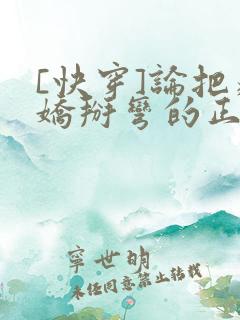 [快穿]論把
嬌掰彎的正
寧世明
未經同意禁止轉載